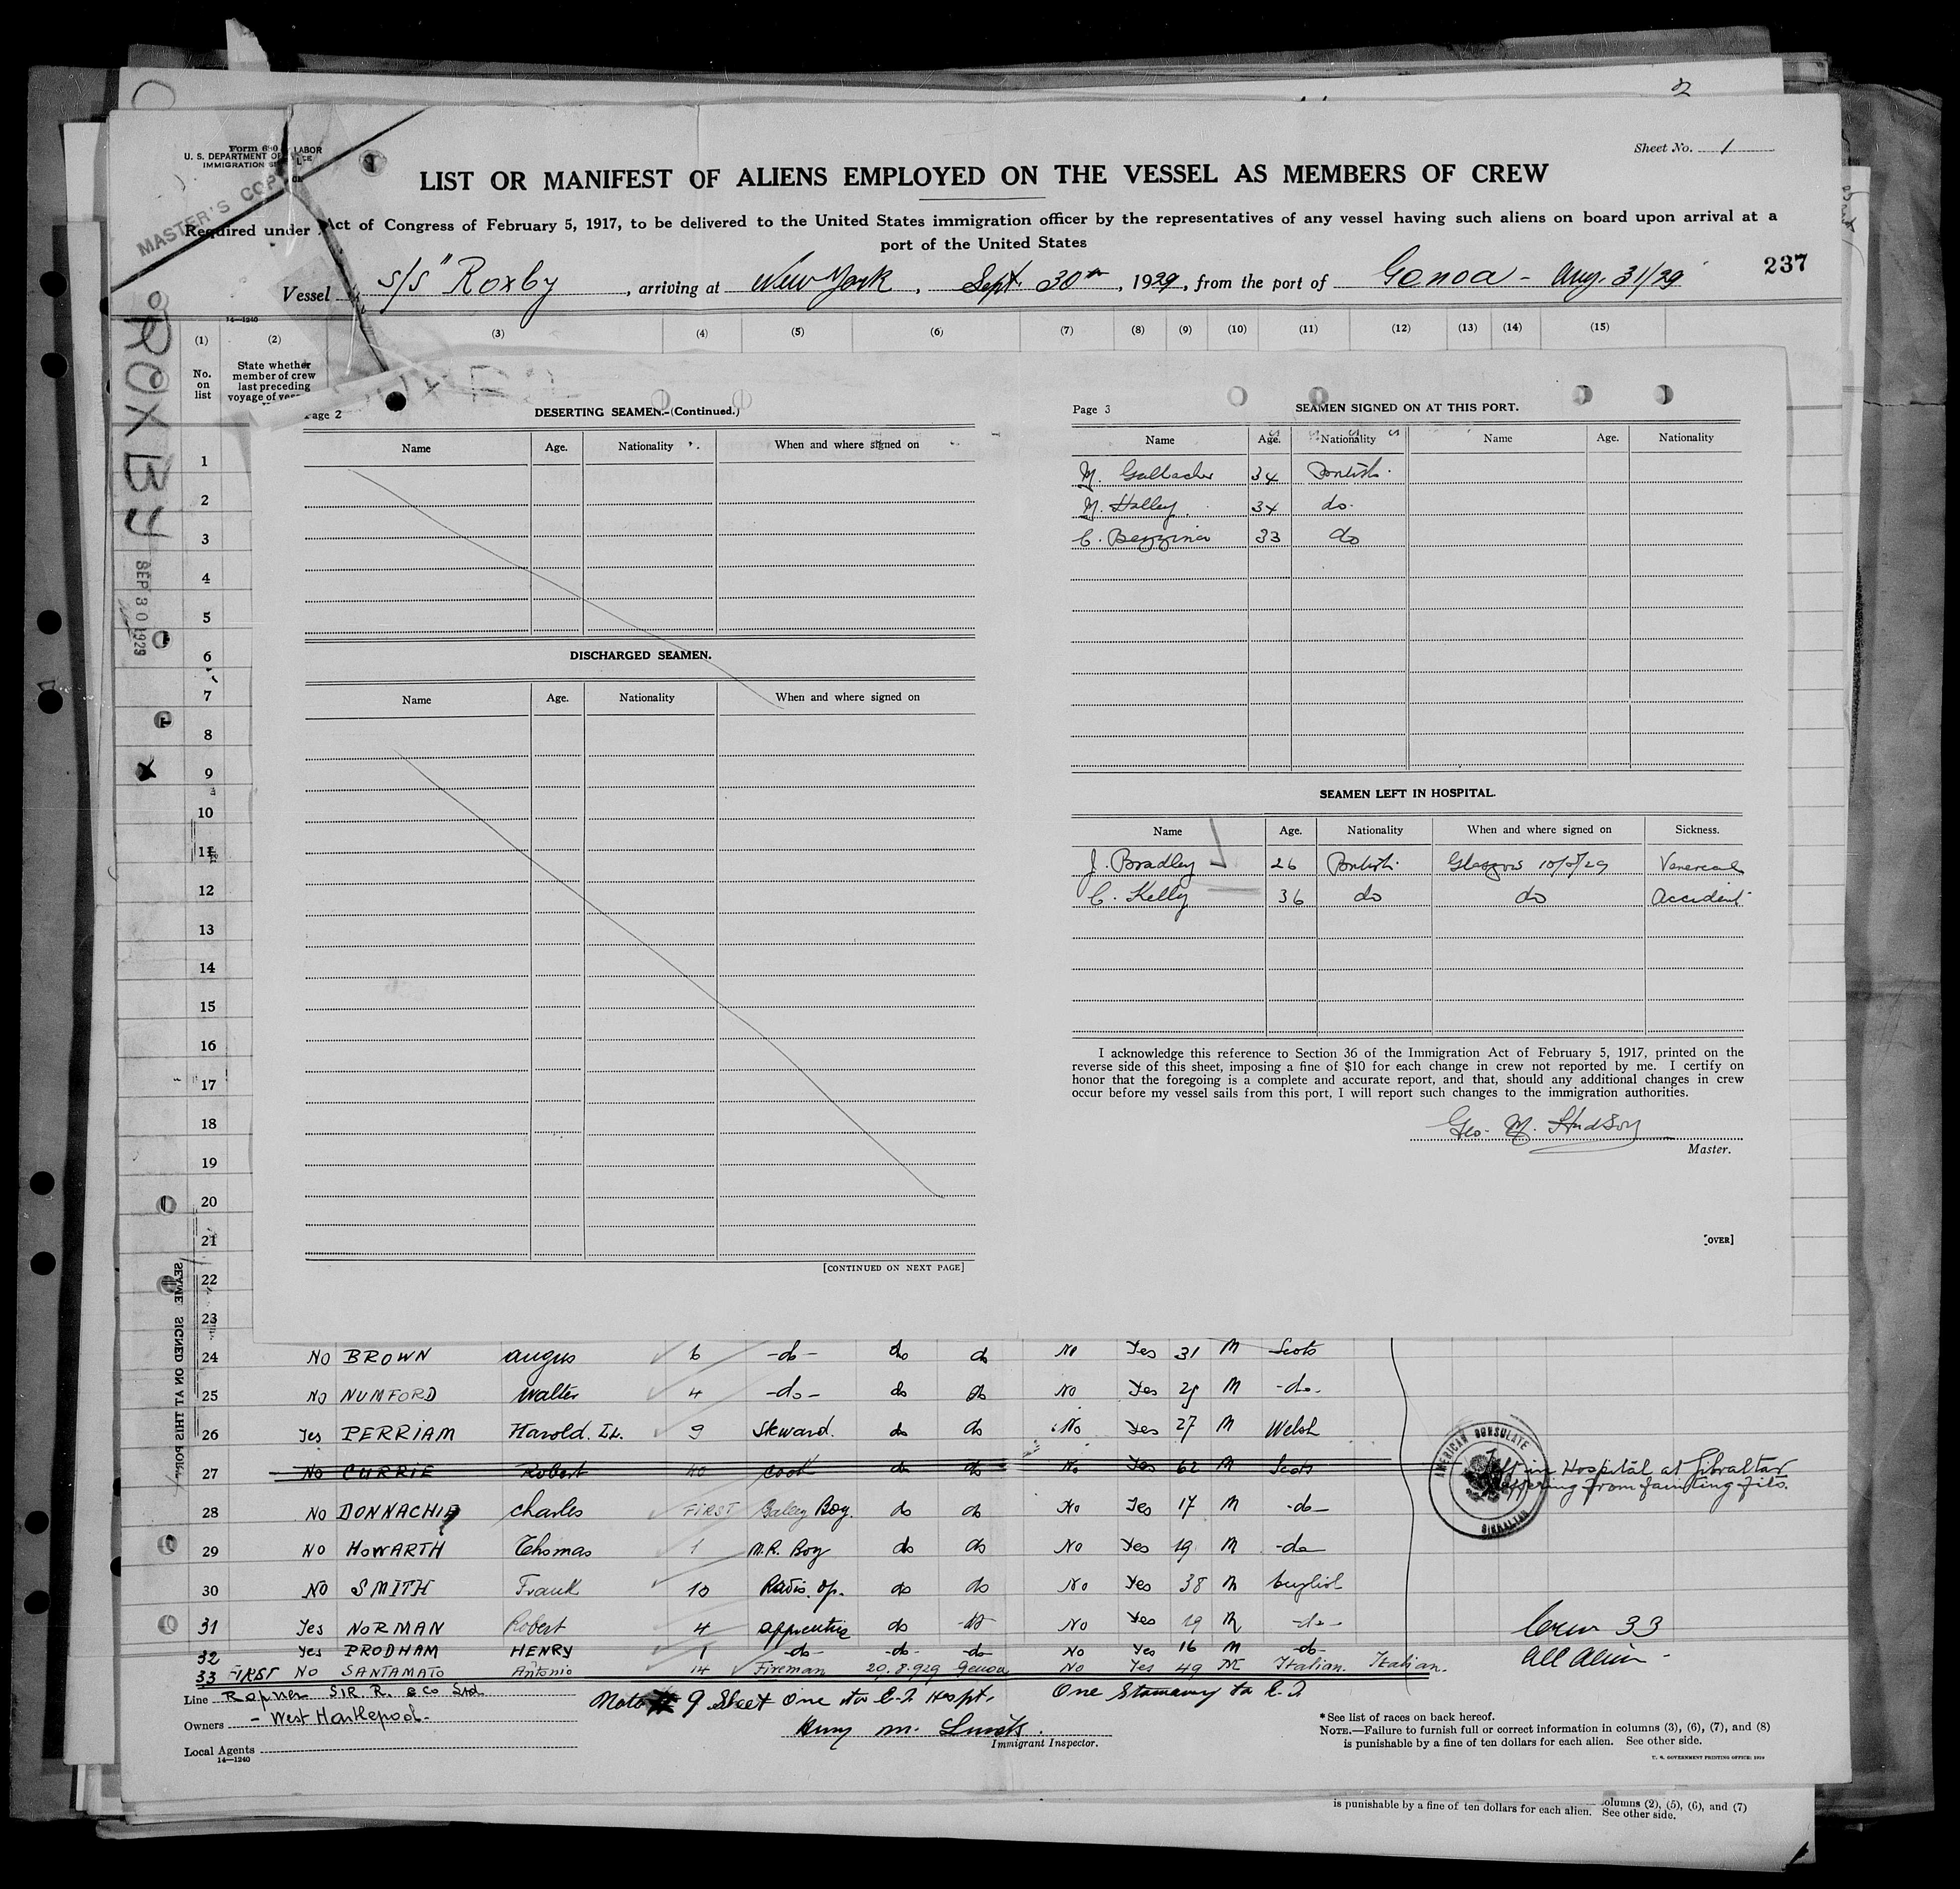 Form 680
U. S. DEPARTMENT OF LABOR
IMMIGRATION
MASTER'S COPY
Sheet No. 1
LIST OR MANIFEST OF ALIENS EMPLOYED ON THE VESSEL AS MEMBERS OF CREW
Required under Act of Congress of February 5, 1917, to be delivered to the United States immigration officer by the representatives of any vessel having such aliens on board upon arrival at a
port of the United States
237
Vessel s/s "Roxby, arriving at New York, Sept. 30th, 1929, from the port of Genoa - Aug. 31/29
14—1240
(1) (2) (3) (4) (5) (6) (7) (8) (9) (10) (11) (12) (13) (14) (15)
No. on list
State whether
member of crew
last preceding
voyage of
ROXBY
SEP 30 1929
Page 2 DESERTING SEAMEN.—(Continued.)
Name Age. Nationality When and where signed on
DISCHARGED SEAMEN.
Name Age. Nationality When and where signed on
[CONTINUED ON NEXT PAGE]
Page 3 SEAMEN SIGNED ON AT THIS PORT.
Name Age. Nationality Name Age. Nationality
M. Gallacher 34 British.
M. Halley. 34 do.
C. Bezzina 33 do
SEAMEN LEFT IN HOSPITAL.
Name Age. Nationality When and where signed on Sickness.
J. Bradley 26 British. Glasgow Venereal
C. Kelly 36 do do Accident
I acknowledge this reference to Section 36 of the Immigration Act of February 5, 1917, printed on the
reverse side of this sheet, imposing a fine of $10 for each change in crew not reported by me. I certify on
honor that the foregoing is a complete and accurate report, and that, should any additional changes in crew
occur before my vessel sails from this port, I will report such changes to the immigration authorities.
Geo. M. Hudson
Master.
[OVER]
1
2
3
4
5
6
7
8
9
10
11
12
13
14
15
16
17
18
19
20
21
22
23
SIGNED ON AT THIS PORT
24 No BROWN Angus 6 -do- do do No Yes 31 M Scots
25 No MUMFORD Walter 4 -do- do do No Yes M -do-
26 Yes PERRIAM Harold. 9 Steward. do do No Yes 27 M Welsh
27 No CURRIE Robert 40 Cook do do No Yes 62 M Scots
Left in Hospital at Gibraltar
suffering from fainting fits.
AMERICAN CONSULATE
GIBRALTAR
28 No DONNACHIE Charles FIRST Galley Boy. do do No Yes 17 M -do-
29 No HOWARTH Thomas 1 M.R. Boy do do No Yes 19 M -do-
30 No SMITH Frank 10 Radio. Op. do do No Yes 38 M English
31 Yes NORMAN Robert 4 apprentice do do No Yes 19 M -do-
32 Yes PRODHAM HENRY 1 -do- -do- -do- No Yes 16 M -do-
33 FIRST No SANTAMATO Antonio 14 Fireman 20.8.929 Genoa No Yes 49 M Italian. Italian.
Crew 33
All Alien -
Line Ropner SIR R. & Co Ltd
Owners - West Hartlepool-
Local Agents
14—1240
9 Sheet One to Hospt.
One
Immigrant Inspector.
* See list of races on back hereof.
NOTE.—Failure to furnish full or correct information in columns (3), (6), (7), and (8)
is punishable by a fine of ten dollars for each alien. See other side.
U. S. GOVERNMENT PRINTING OFFICE:
is punishable by a fine of ten dollars for each alien. columns (2), (5), (6), and (7)
See other side.